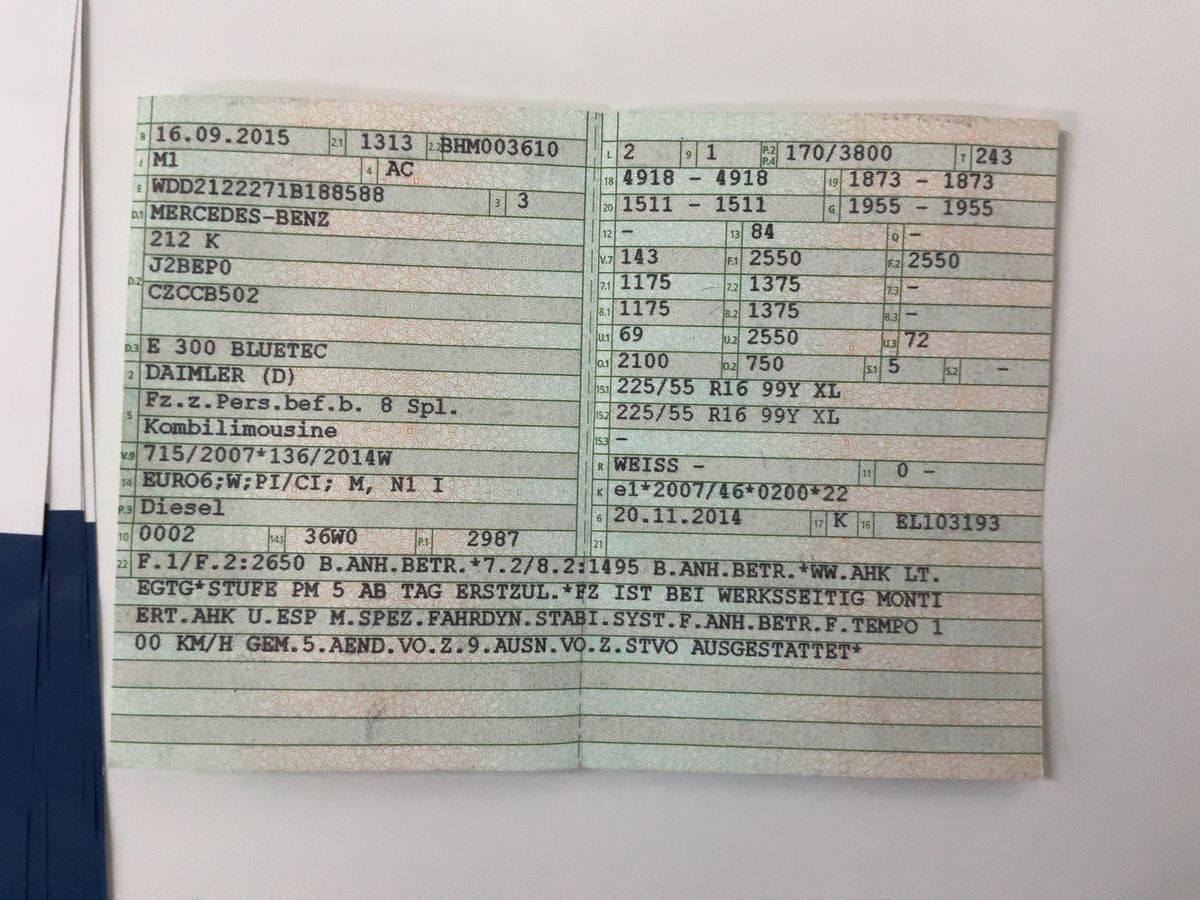 B 16.09.2015 2.1 1313 2.2 BHM003610
J M1 4 AC
E WDD2122271B188588 3 3
D.1 MERCEDES-BENZ
212 K
D.2 J2BEP0
CZCCB502
D.3 E 300 BLUETEC
2 DAIMLER (D)
5 Fz.z.Pers.bef.b. 8 Spl.
Kombilimousine
V.9 715/2007*136/2014W
14 EURO6;W;PI/CI; M, N1 I
P.3 Diesel
10 0002 14.1 36W0 P.1 2987
L 2 9 1 P.2 P.4 170/3800 T 243
18 4918 - 4918 19 1873 - 1873
20 1511 - 1511 G 1955 - 1955
12 - 13 84 Q -
V.7 143 F.1 2550 F.2 2550
7.1 1175 7.2 1375 7.3 -
8.1 1175 8.2 1375 8.3 -
U.1 69 U.2 2550 U.3 72
O.1 2100 O.2 750 S.1 5 S.2 -
15.1 225/55 R16 99Y XL
15.2 225/55 R16 99Y XL
15.3 -
R WEISS - 11 0 -
K e1*2007/46*0200*22
6 20.11.2014 17 K 16 EL103193
21
22 F.1/F.2:2650 B.ANH.BETR.*7.2/8.2:1495 B.ANH.BETR.*WW.AHK LT.
EGTG*STUFE PM 5 AB TAG ERSTZUL.*FZ IST BEI WERKSSEITIG MONTI
ERT.AHK U.ESP M.SPEZ.FAHRDYN.STABI.SYST.F.ANH.BETR.F.TEMPO 1
00 KM/H GEM.5.AEND.VO.Z.9.AUSN.VO.Z.STVO AUSGESTATTET*